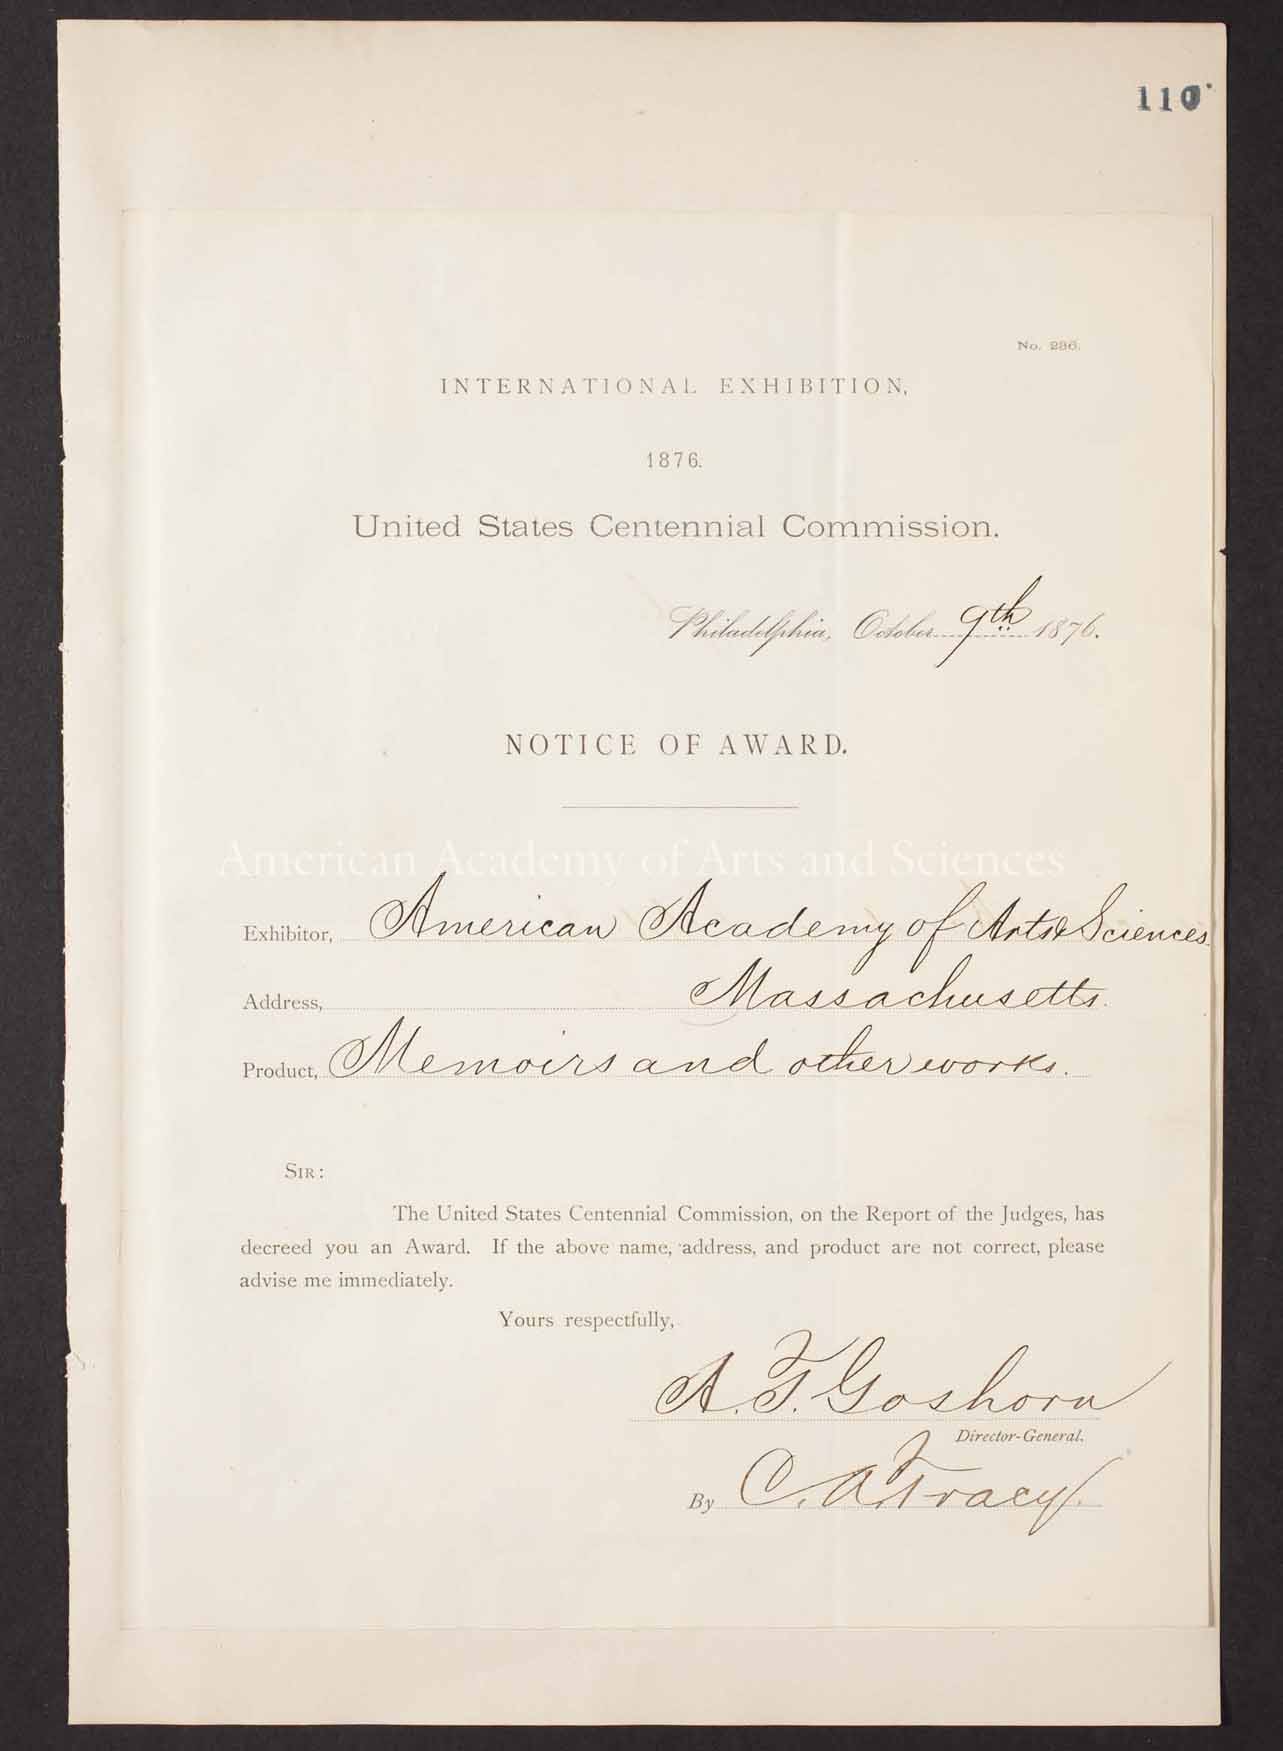 110
No. 236.
INTERNATIONAL EXHIBITION,
1876.
United States Centennial Commission.
Philadelphia, October 9th 1876.
NOTICE OF AWARD.
American Academy of Arts and Sciences
Exhibitor, American Academy of Arts & Sciences
Address, Massachusetts.
Product, Memoirs and other works.
SIR:
The United States Centennial Commission, on the Report of the Judges, has
decreed you an Award. If the above name, address, and product are not correct, please
advise me immediately.
Yours respectfully,
A. T. Goshorn
Director-General.
By C. A. Tracy.